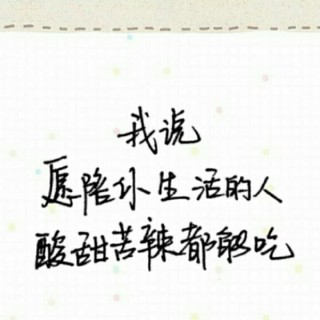 我说
愿陪你生活的人
酸甜苦辣都能吃